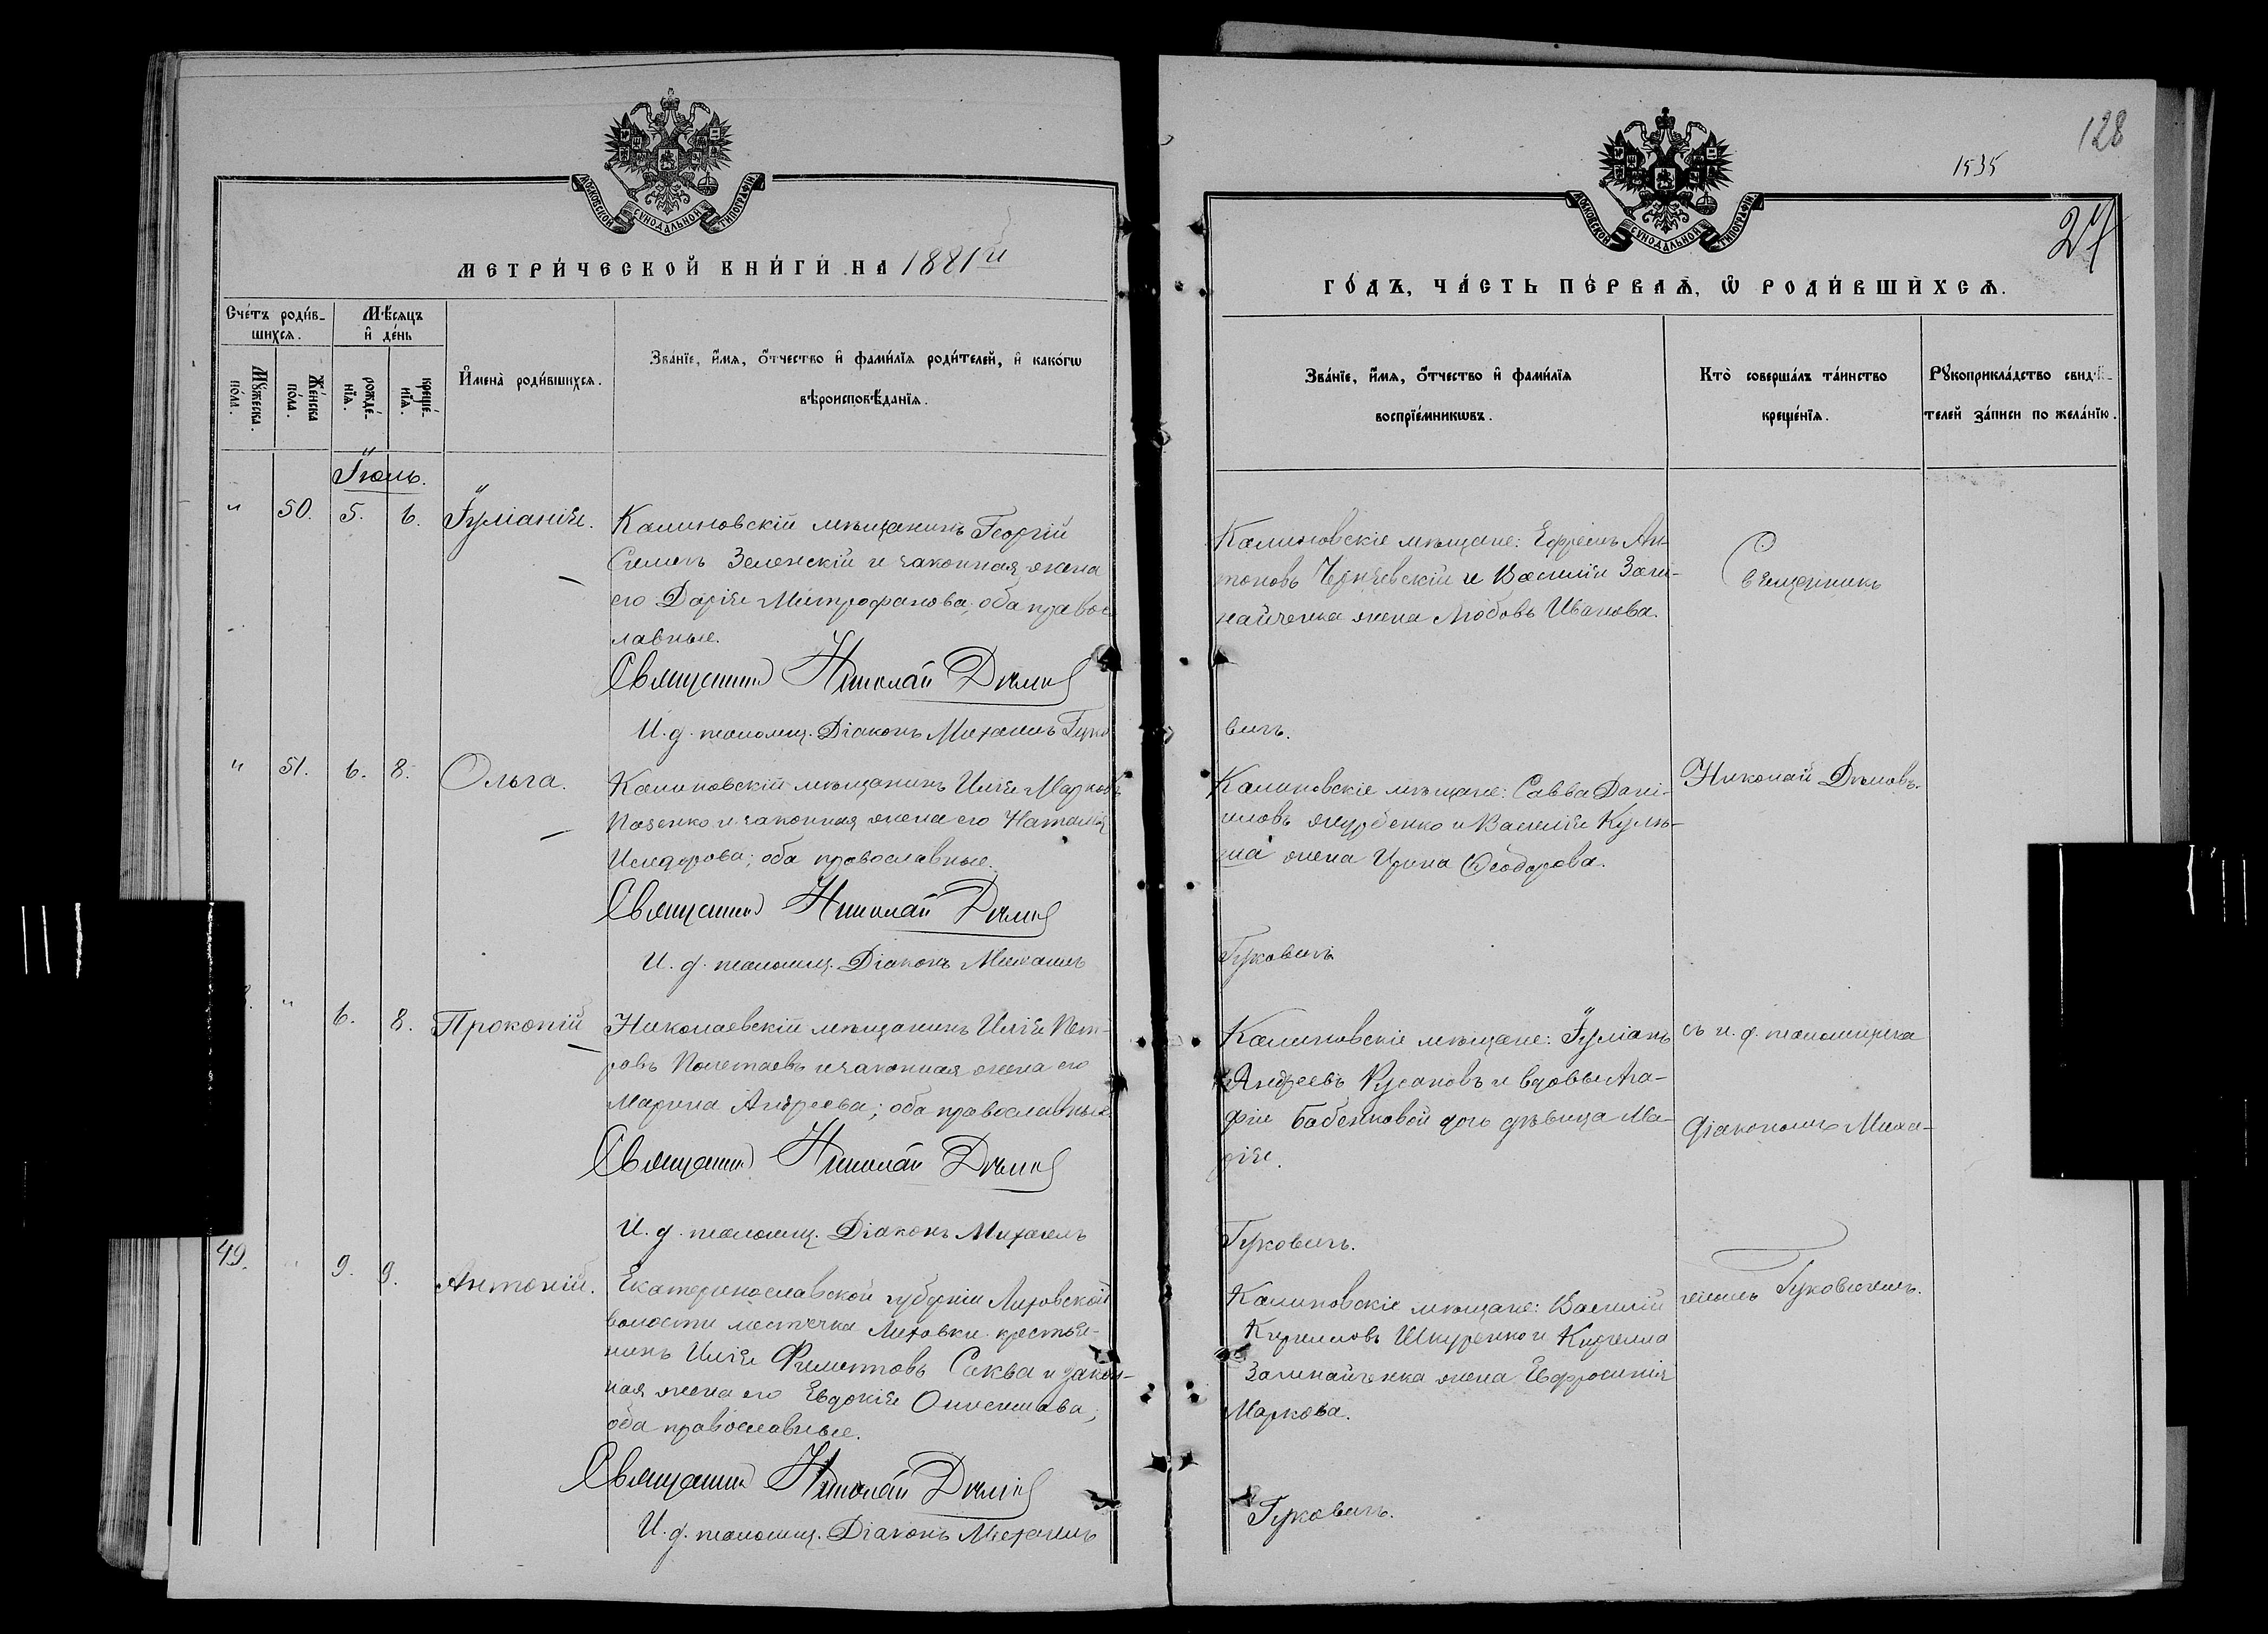 МОСКОВСКОЙ СѴНОДАЛЬНОЙ ТИПОГРАФІИ
МЕТРИ́ЧЕСКОЙ КНИ́ГИ НА 1881й
Сче́тъ роди́в-
шихся.
Мѣ́сяцъ
и҆ де́нь
Мꙋ́жеска по́ла.
Же́нска по́ла.
рожде́-
нїя.
креще́-
нїя.
И҆мена̀ роди́вшихся.
Зва́нїе, и҆́мя, ѻ҆́тчество и҆ фами́лїя роди́телей, и҆ како́гѡ
вѣроисповѣ́данїя.
Іюль.
" 50. 5. 6. Іуліанія. Калиновскій мѣщанинъ Георгій
Симонъ Зеленскій и законная жена
его Дарія Митрофанова; оба правос
лавные.
Священникъ Николай Дѣмов
И. д. псаломщ. Діаконъ Михаилъ Гуко
" 51. 6. 8. Ольга. Калиновскій мѣщанинъ Илія Марковъ
и законная жена его Наталія
Исидорова; оба православные.
Священникъ Николай Дѣмов
И. д. псаломщ. Діаконъ Михаилъ
" 6. 8. Прокопій Николаевскій мѣщанинъ Илія Пет-
ровъ Полетаевъ и законная жена его
Марина Андреева; оба православные.
Священникъ Николай Дѣмов
И. д. псаломщ. Діаконъ Михаилъ
49. " 9. 9. Антоній. Екатеринославской губерніи Лиховской
волости местечка Лиховки крестья-
нинъ Илія Филиповъ Саква и закон-
ная жена его Евдокія
оба православные.
Священникъ Николай Дѣмов
И. д. псаломщ. Діаконъ Михаилъ
128
1535
27
МОСКОВСКОЙ СѴНОДАЛЬНОЙ ТИПОГРАФІИ
ГО́ДЪ, ЧА́СТЬ ПЕ́РВАЯ, Ѡ҆ РОДИ́ВШИХСЯ.
Зва́нїе, и҆́мя, ѻ҆́тчество и҆ фами́лїя
воспрїе́мникѡвъ.
Кто̀ соверша́лъ та́инство
креще́нїя.
Рꙋкоприкла́дство свидѣ́-
телей за́писи по жела́нїю.
Калиновскіе мѣщане: Ефремъ Ан-
тоновъ Чернявскій и Василія Зачи-
найченка жена Любовь Иванова.
Священникъ
вичъ.
Калиновскіе мѣщане: Савва Дані-
иловъ и Василія Куль-
ша жена Ирина Ѳеодорова.
Николай Дѣмовъ.
Гуковичъ
Калиновскіе мѣщане: Іуліанъ
Андреевъ Русановъ и вдовы Ага-
фіи Бабенковой дочь дѣвица Ма-
рія.
съ и. д. псаломщика
діакономъ Миха-
Гуковичъ.
Калиновскіе мѣщане: Василій
Кирилловъ Шкуренко и Кирилла
Зачинайченка жена Евфросинія
Маркова.
иломъ Гуковичемъ.
Гуковичъ.